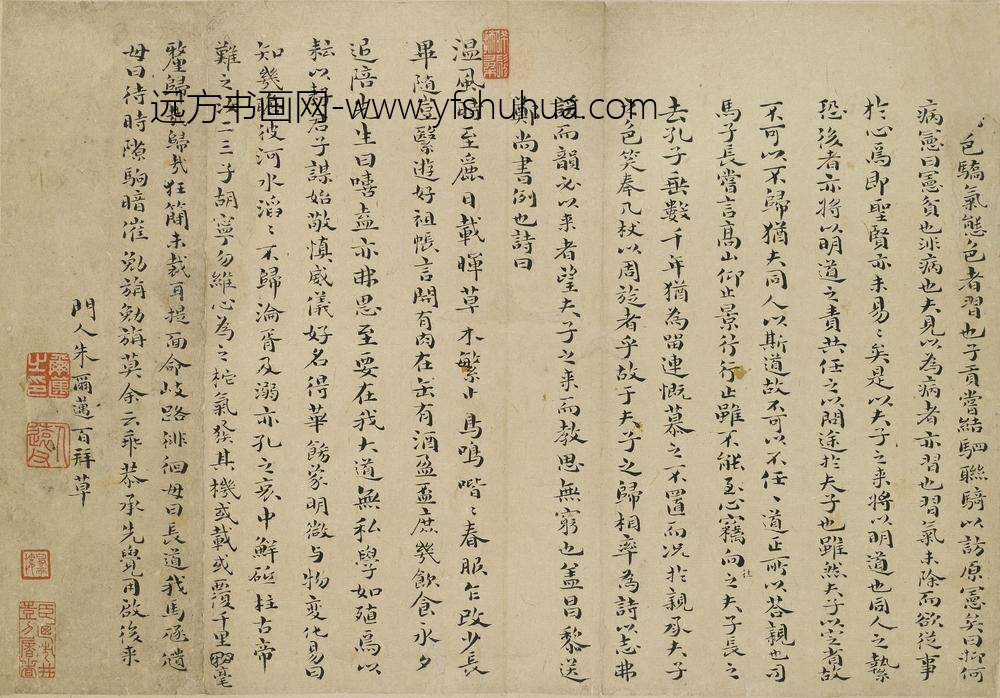 色驕氣態色者習也子貢嘗結駟聯騎以訪原憲矣曰抑何
病憲曰憲貧也非病也夫見以為病者亦習也習氣未除而欲從事
於心焉即聖賢亦未易〻矣是以夫子之来將以明道也同人之蓺
恐後者亦將以明道之責共任之以問途於夫子也雖然夫子以定省故
不可以不歸猶夫同人以斯道故不可以不任〻道正所以荅親也司
馬子長嘗言髙山仰止景行行止雖不能至心竊向之夫子長之
去孔子垂數千年猶為留連慨慕之不置而况於親承夫子
色笑奉几杖以周旋者乎故于夫子之歸相率為詩以志弗
諼而韻必以来者望夫子之来而教思無窮也盖昌黎送
鄭尚書例也詩曰
温風時至麗日載暉草木繁止馬鳴喈〻春服乍改少長
畢隨壹繄遊好祖帳言開有肉在缶有酒盈盃庶幾飲食永夕
追陪先生曰嘻盍亦弗思至要在我大道無私學如殖焉以
耘以耔君子謀始敬慎威儀好名得華餙蒙明微与物变化易曰
知幾瞻彼河水滔〻不歸淪胥及溺亦孔之哀中鮮砥柱古帝
難之汝二三子胡寧勿維心為之柁氣發其機或載或覆千里毫
釐歸與歸哉狂簡未裁耳提面命歧路徘徊毋曰長道我馬逐遺
毋曰待時隙駒暗催勉旃勉旃莫余云乖恭承先覺用啟後来
門人朱爾邁百拜草
远方书画网-www.yfshuhua.com